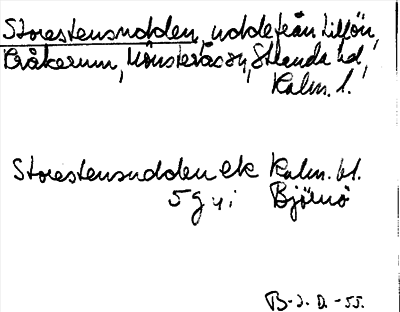 Storestensudden, udde från Lillön,
Kråkerum, Mönsterås sn, Stranda hd,
Kalm. l.
Storestensudden ek Kalm. bl.
5 g
Björnö
B-J. D. -55.